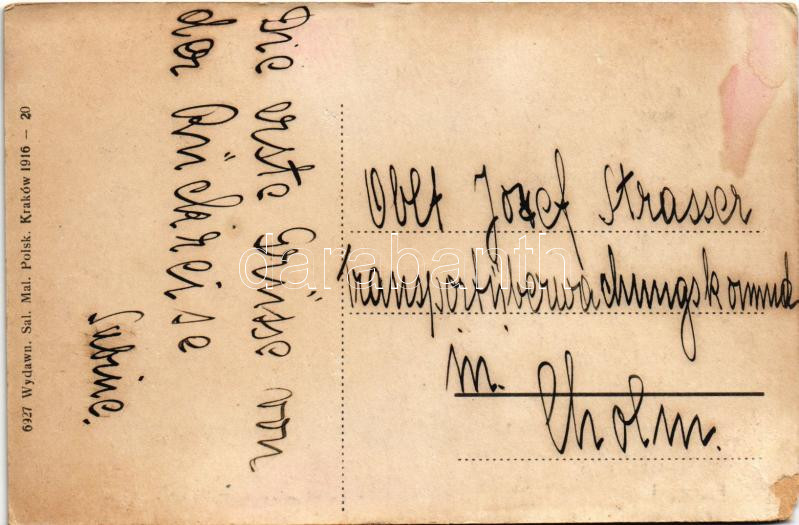 Die erste Grüsse von
der Rückreise
Sabine.
Oblt Jozef Strasser
Transportüberwachungskommdo
in
Cholm.
6927 Wydawn. Sal. Mal. Polsk. Kraków 1916 — 20
darabanth